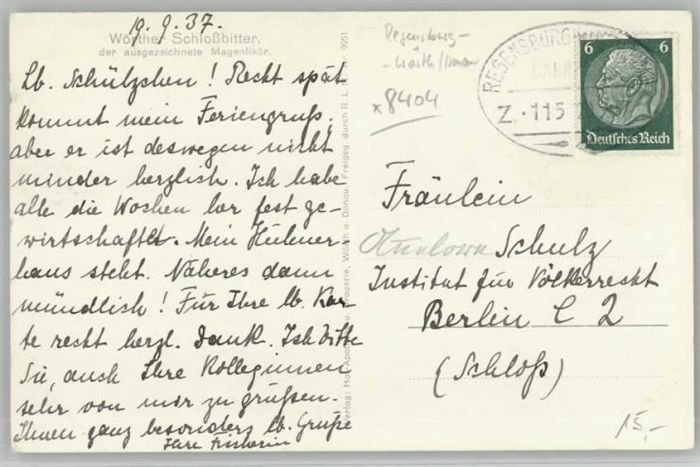 19.9.37.
Wörther Schloßbitter,
der ausgezeichnete Magenlikör.
Lb. Schülzchen! Recht spät
kommt mein Feriengruß,
aber er ist deswegen nicht
minder herzlich. Ich habe
alle die Wochen her fest ge-
wirtschaftet. Mein Hühner
haus steht. Näheres dann
mündlich! Für Ihre lb. Kar-
te recht herzl. Dank. Ich bitte
Sie, auch Ihre Kolleginnen
sehr von mir zu grüßen.
Ihnen ganz besonders lb. Grüße
Ihre
Regensburg-
-Wörth/Donau
x8404
REGENSBURG
Z. 115
6 6
Deutsches Reich
Fräulein
Schulz
Institut für Völkerrecht
Berlin C 2
(Schloß)
15,-